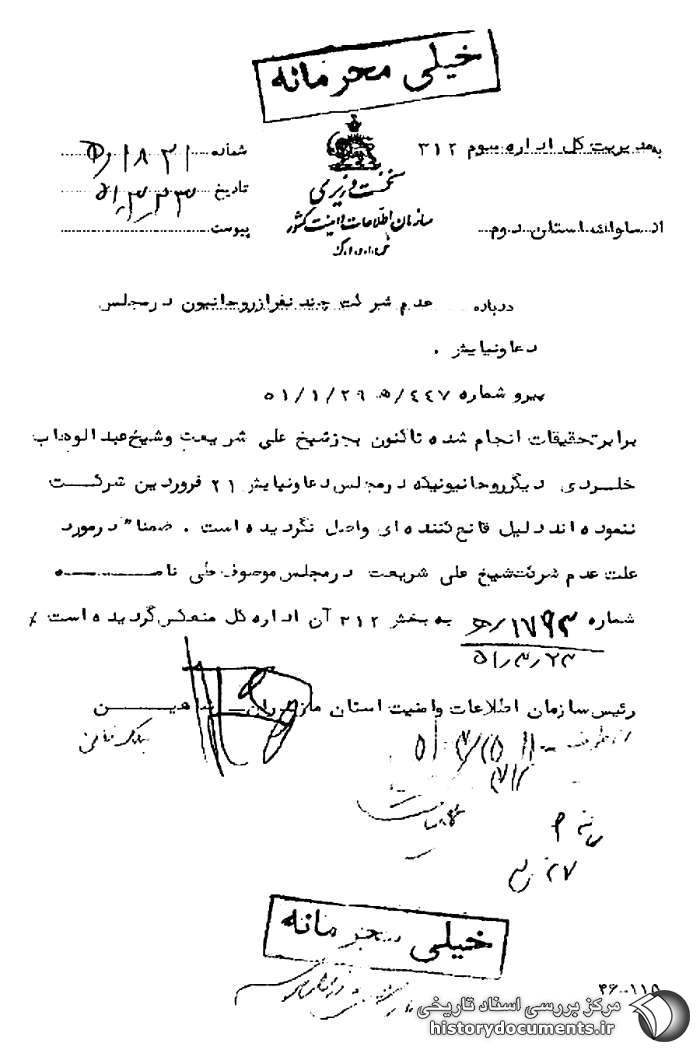 خیلی محرمانه
به مدیریت کل اداره سوم ۳۱۲
شماره ۱۸۳۱/ه
نخست وزیری
تاریخ ۵۱/۳/۲۳
سازمان اطلاعات و امنیت کشور
از ساواک استان دوم
پیوست
س.ا.و.ا.ک
درباره عدم شرکت چند نفر از روحانیون در مجلس
دعا و نیایش .
پیرو شماره ۴۴۷/ه ۵۱/۱/۲۹
برابر تحقیقات انجام شده تاکنون بجز شیخ علی شریعت و شیخ عبدالوهاب
دیگر روحانیونیکه در مجلس دعا و نیایش ۲۱ فروردین شرکت
ننموده اند دلیل قانع کننده ای واصل نگردیده است . ضمنا" در مورد
علت عدم شرکت شیخ علی شریعت در مجلس موصوف طی نامه
شماره ۱۷۹۳/ه به بخش ۳۱۲ آن اداره کل منعکس گردیده است ٪
۵۱/۳/۲۳
رئیس سازمان اطلاعات و امنیت استان مازندران ـ شاهین
۲۷
خیلی محرمانه
۴۶-۱۱۵
مرکز بررسی اسناد تاریخی
historydocuments.ir